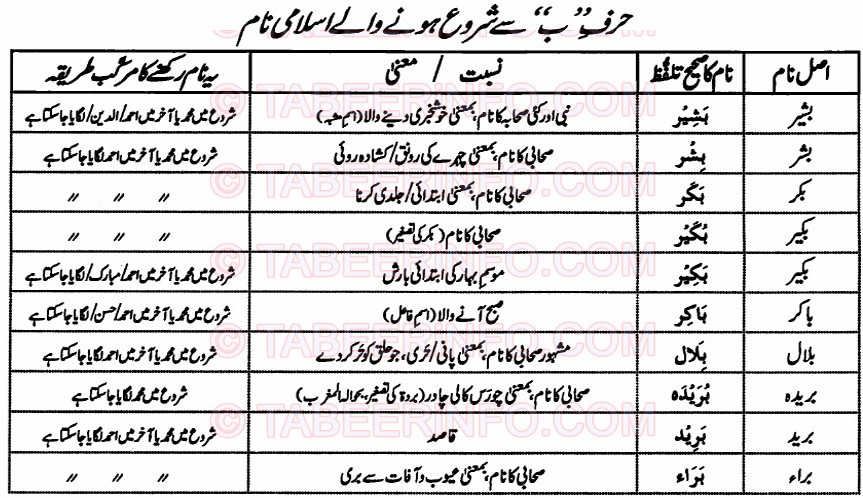 حرفِ ”ب“ سے شروع ہونے والے اسلامی نام
اصل نام	نام کا صحیح تلفّظ	نسبت / معنیٰ	یہ نام رکھنے کا مرکّب طریقہ
بشیر	بَشِیْر	نبی اور کئی صحابہ کا نام، بمعنیٰ خوشخبری دینے والا (اسم مشبہ)	شروع میں محمد یا آخر میں احمد/الدین/لگایا جاسکتا ہے
بشر	بِشْر	صحابی کا نام، بمعنیٰ چہرے کی رونق/کشادہ روئی	شروع میں محمد یا آخر میں احمد لگایا جاسکتا ہے
بکر	بَکْر	صحابی کا نام، بمعنیٰ ابتدائی/جلدی کرنا	〃 〃 〃
بکیر	بُکَیْر	صحابی کا نام (بکر کی تصغیر)	〃 〃 〃
بکیر	بَکِیْر	موسمِ بہار کی ابتدائی بارش	شروع میں محمد یا آخر میں احمد/مبارک/لگایا جاسکتا ہے
باکر	بَاکِر	صبح آنے والا (اسم فاعل)	شروع میں محمد یا آخر میں احمد/حسن/لگایا جاسکتا ہے
بلال	بِلَال	مشہور صحابی کا نام، بمعنیٰ پانی/تَری، جو حلق کو تر کردے	شروع میں محمد یا آخر میں احمد لگایا جاسکتا ہے
بریدہ	بُرَیْدَہ	صحابی کا نام، بمعنیٰ چورَس کالی چادر (بردۃ کی تصغیر، بحوالہ المغرب)	شروع میں محمد لگایا جاسکتا ہے
برید	بَرِیْد	قاصد	شروع میں محمد یا آخر میں احمد لگایا جاسکتا ہے
براء	بَرَاء	صحابی کا نام، بمعنیٰ عیوب و آفات سے بری	〃 〃 〃
© TABEERINFO.COM
© TABEERINFO.COM
© TABEERINFO.COM
© TABEERINFO.COM
© TABEERINFO.COM